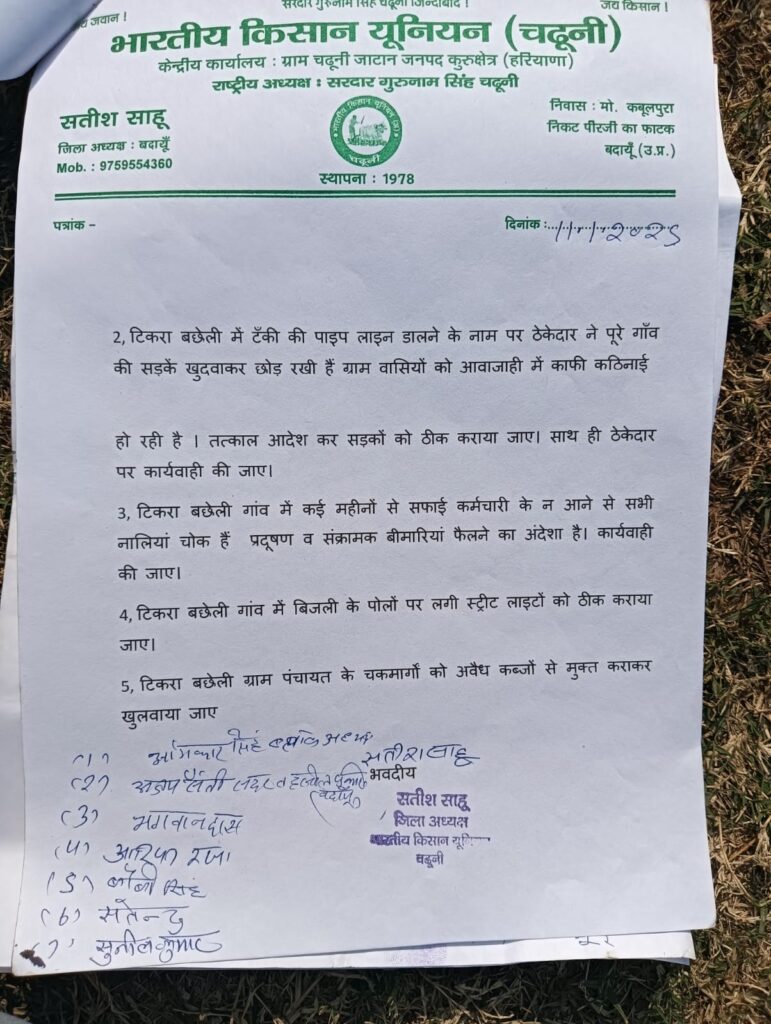 जय जवान !
सरदार गुरुनाम सिंह चढूनी जिन्दाबाद !
जय किसान !
भारतीय किसान यूनियन (चढूनी)
केन्द्रीय कार्यालय : ग्राम चढूनी जाटान जनपद कुरुक्षेत्र (हरियाणा)
राष्ट्रीय अध्यक्ष : सरदार गुरुनाम सिंह चढूनी
सतीश साहू
जिला अध्यक्ष : बदायूँ
Mob. : 9759554360
चढूनी
स्थापना : 1978
निवास : मो. कबूलपुरा
निकट पीरजी का फाटक
बदायूँ (उ.प्र.)
पत्रांक -
दिनांक :
2, टिकरा बछेली में टँकी की पाइप लाइन डालने के नाम पर ठेकेदार ने पूरे गाँव
की सड़कें खुदवाकर छोड़ रखी हैं ग्राम वासियों को आवाजाही में काफी कठिनाई
हो रही है । तत्काल आदेश कर सड़कों को ठीक कराया जाए। साथ ही ठेकेदार
पर कार्यवाही की जाए।
3, टिकरा बछेली गांव में कई महीनों से सफाई कर्मचारी के न आने से सभी
नालियां चोक हैं प्रदूषण व संक्रामक बीमारियां फैलने का अंदेशा है। कार्यवाही
की जाए।
4, टिकरा बछेली गांव में बिजली के पोलों पर लगी स्ट्रीट लाइटों को ठीक कराया
जाए।
5, टिकरा बछेली ग्राम पंचायत के चकमार्गो को अवैध कब्जों से मुक्त कराकर
खुलवाया जाए
(1) सिंह
सतीश साहू
(2)
भवदीय
(3) भगवानदास
सतीश साहू
जिला अध्यक्ष
भारतीय किसान
चढूनी
(4) रजा
(5) बॉबी सिंह
(6)
(7) सुनील कुमार